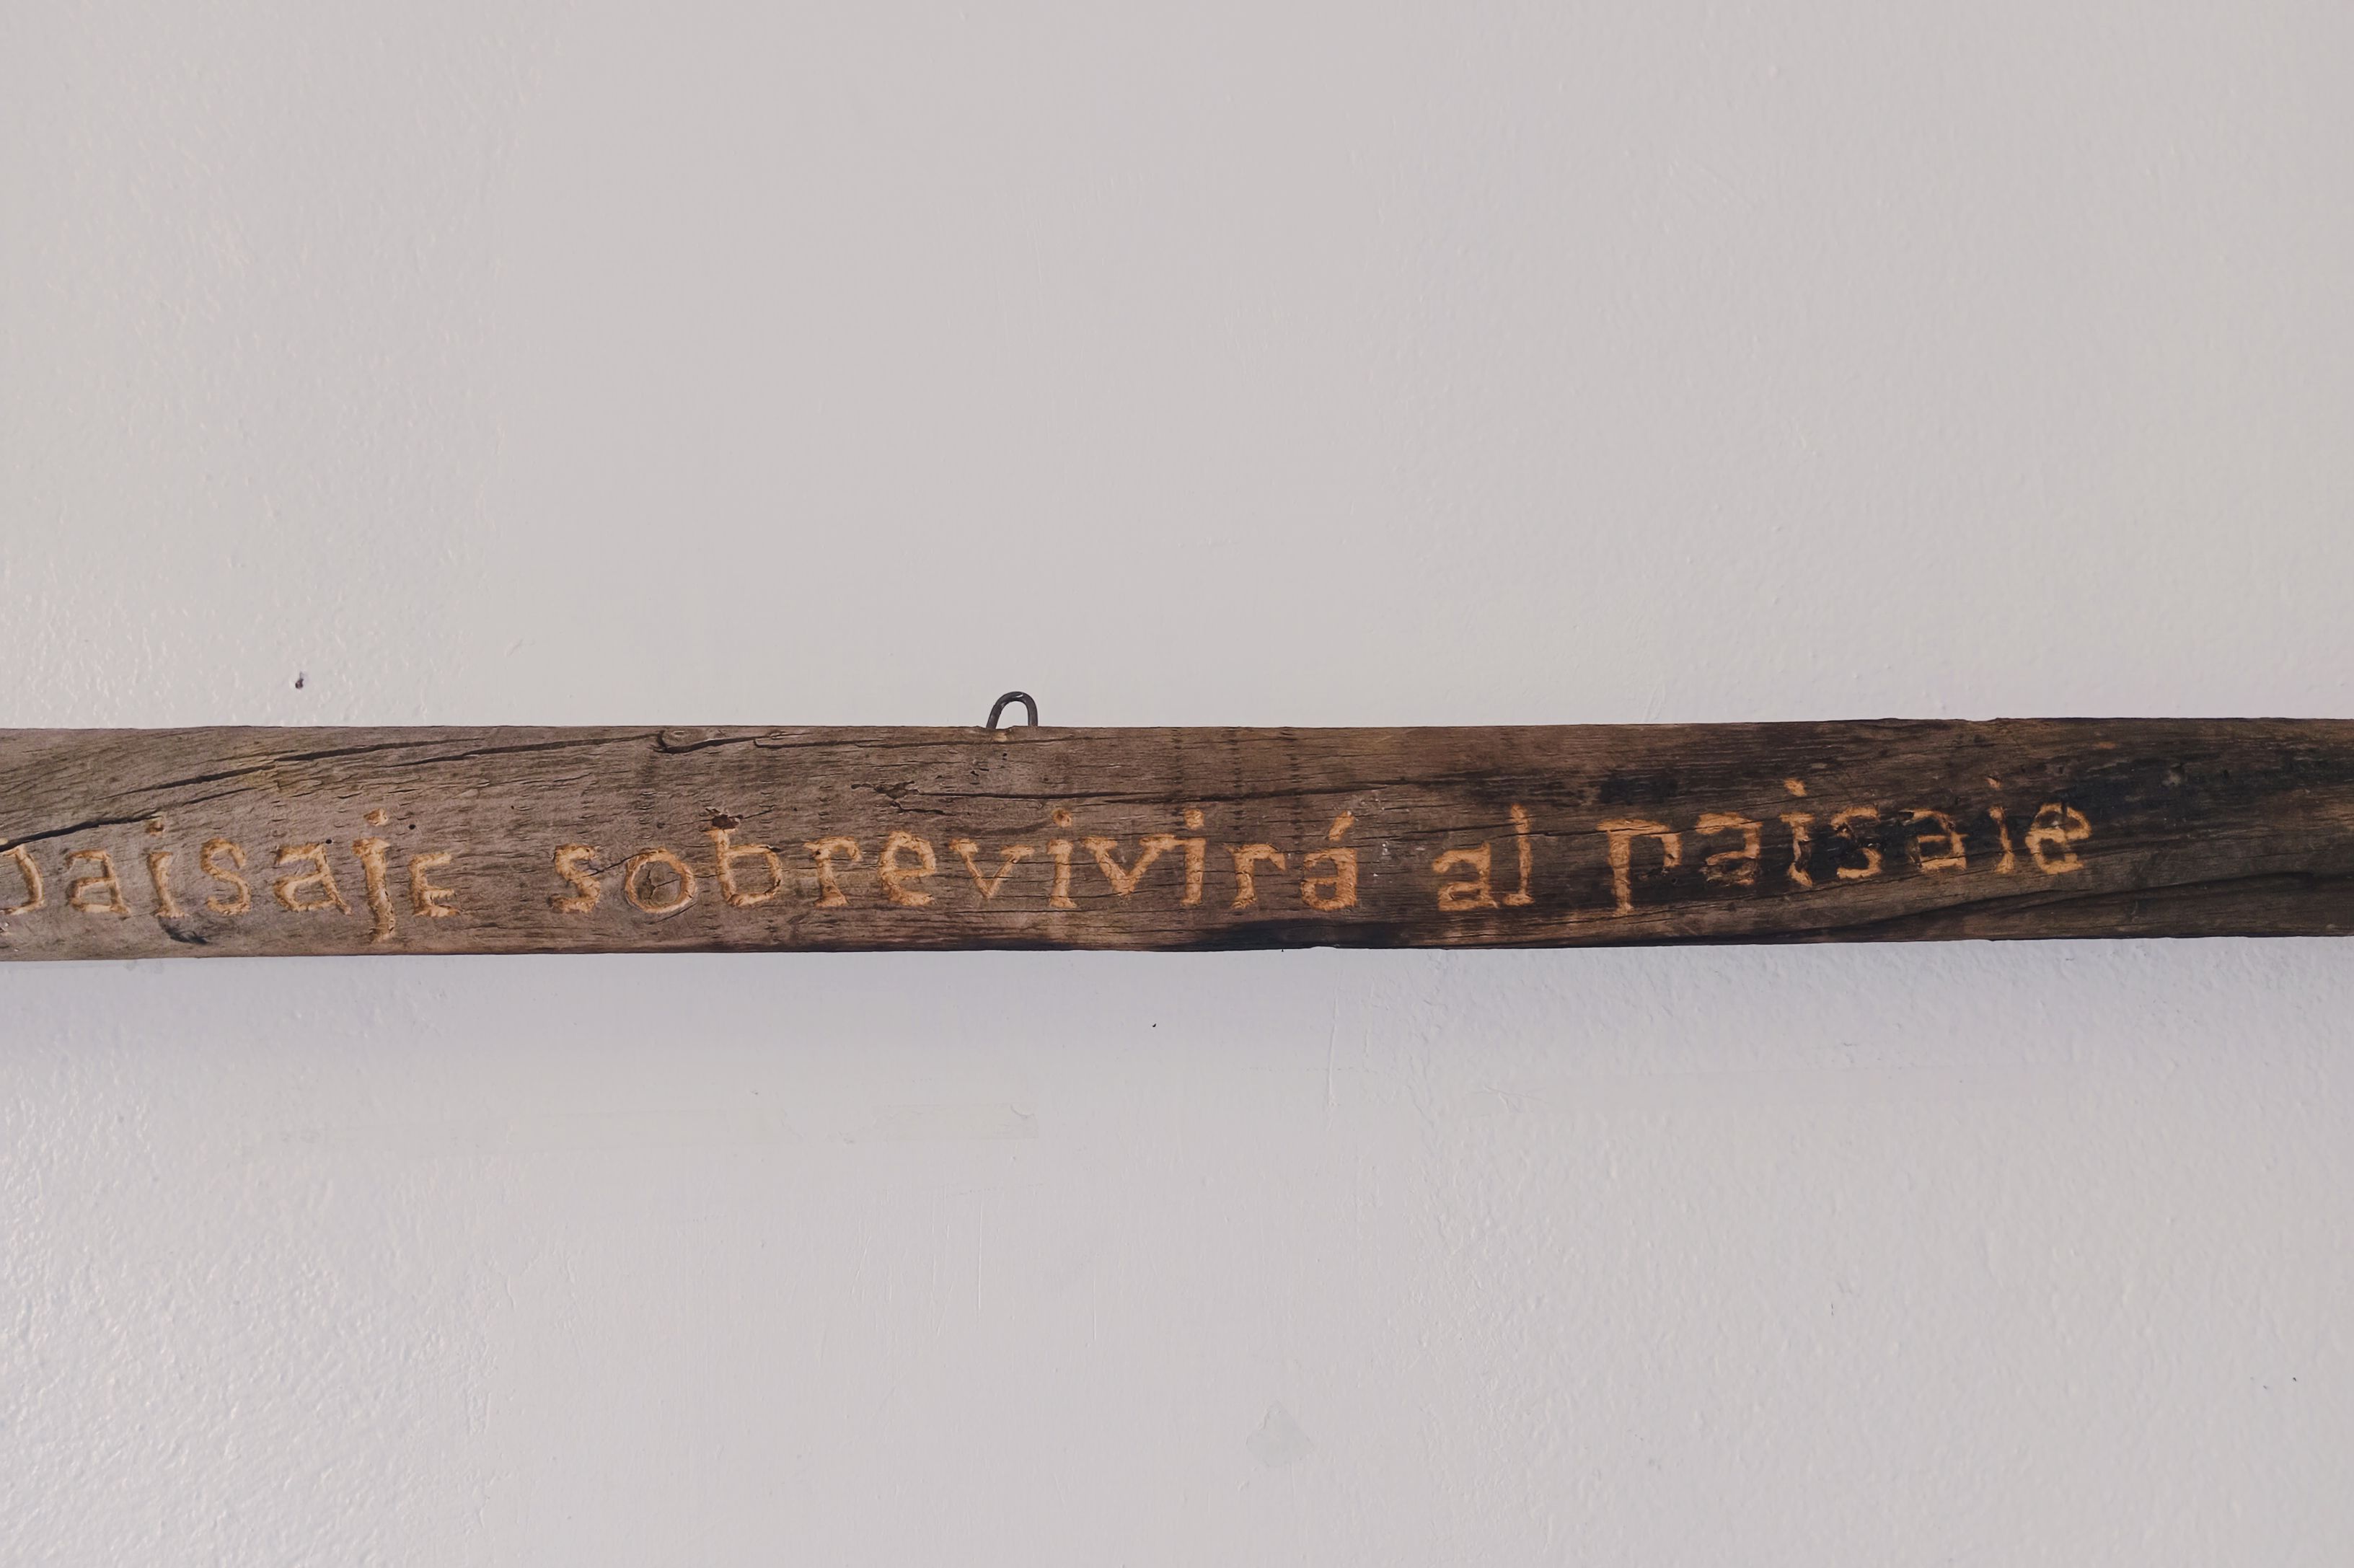 paisaje sobrevivirá al paisaje